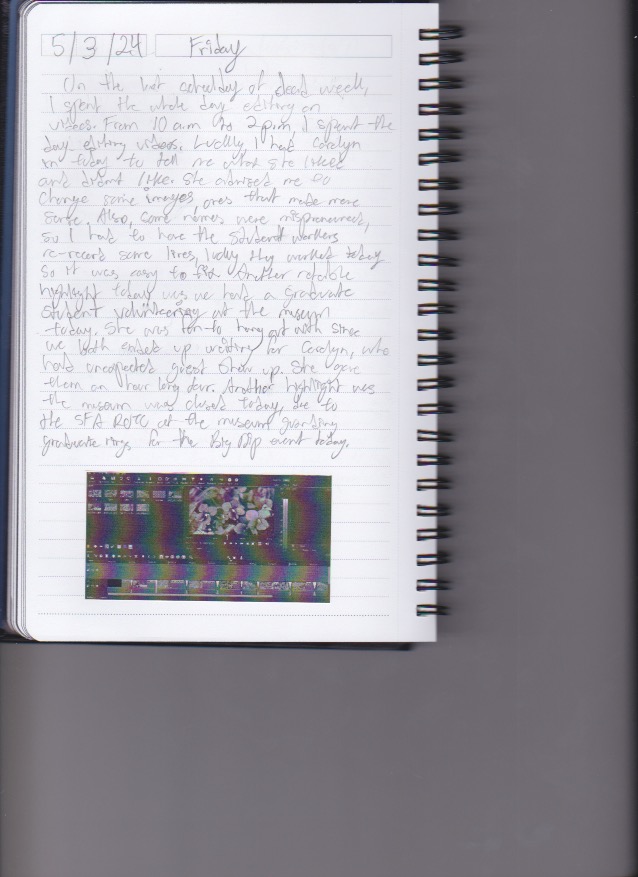 5/3/24 Friday
On the last schoolday of dead week,
I spent the whole day editing on
videos. From 10 a.m to 2 p.m, I spent the
day editing videos. Luckily I had Carolyn
in today to tell me what she liked
and didnt like. She advised me to
change some images, ones that made more
sense. Also, some names were
so I had to have the student workers
re-record some lines, lucky they worked today
so it was easy to fix. Another notable
highlight today was we had a graduate
student volunteering at the museum
today. She was fun to hang out with since
we both ended up waiting for Carolyn, who
had unexpected guest show up. She gave
them an hour long tour. Another highlight was
the museum was closed today, due to
the SFA ROTC at the museum guarding
graduate rings for the Big Dip event today.